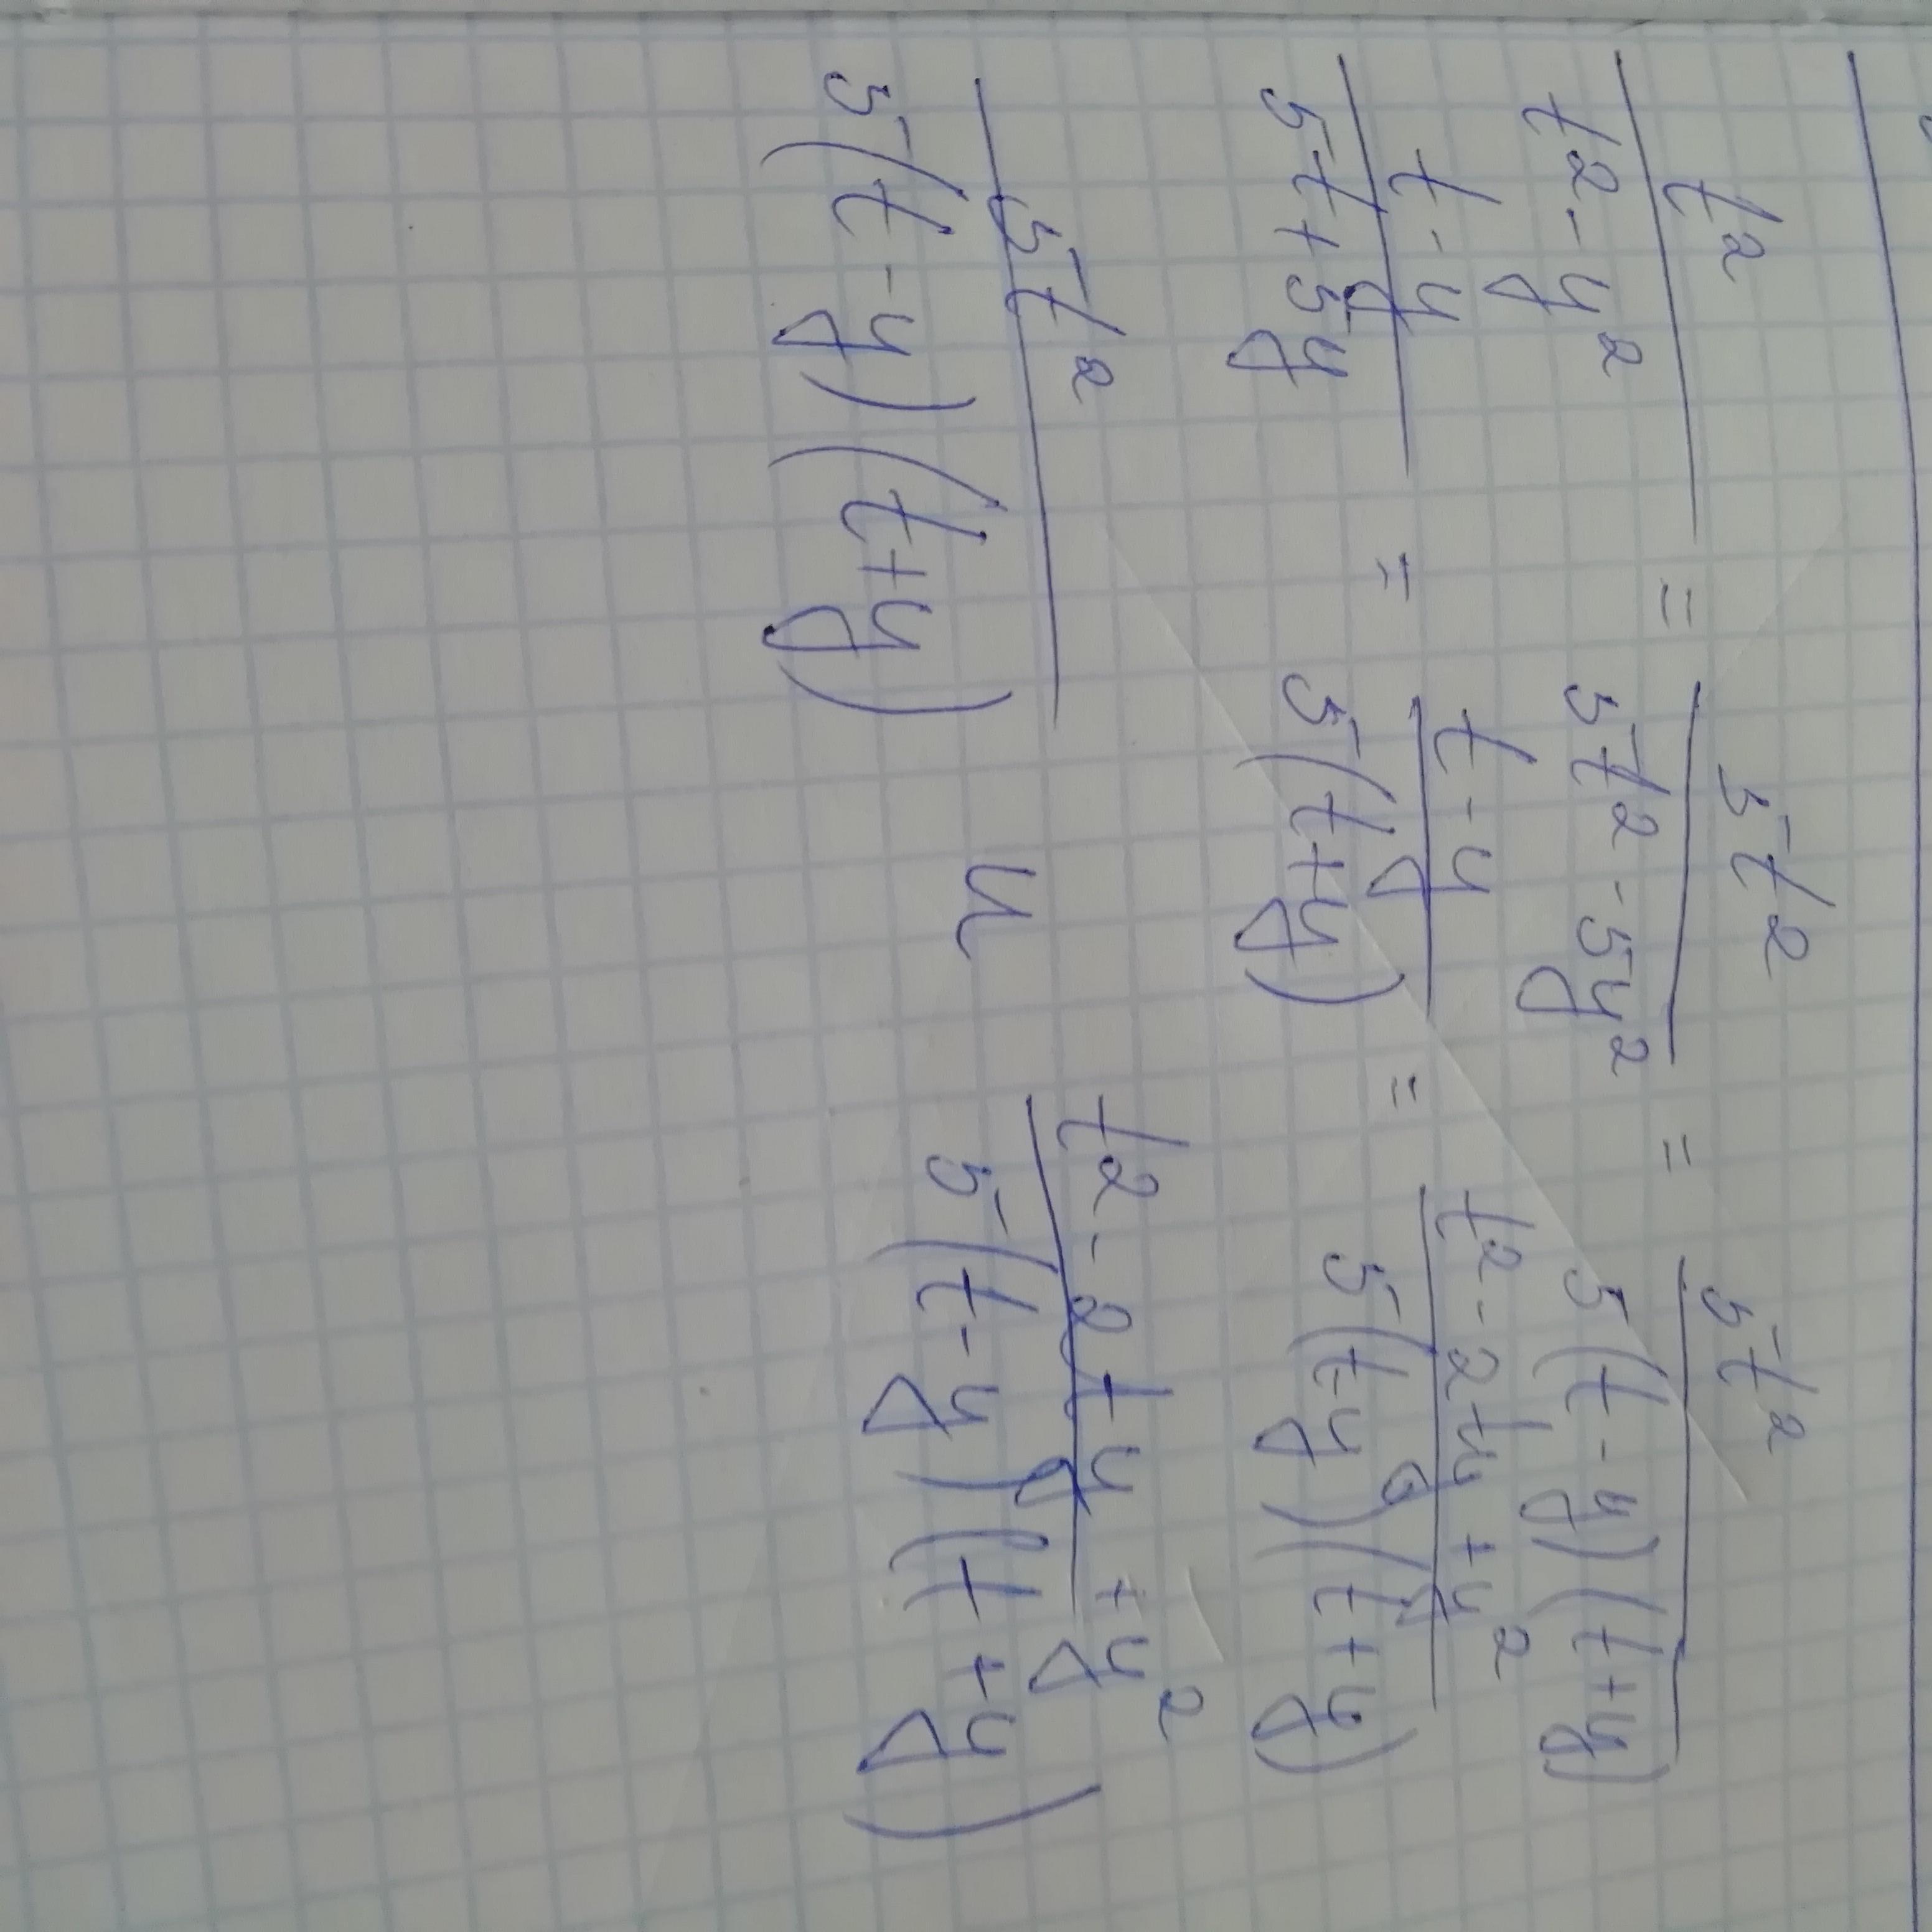 t²/(t² - y²) = 5t²/(5t² - 5y²) = 5t²/(5(t - y)(t + y))
(t - y)/(5t + 5y) = (t - y)/(5(t + y)) = (t² - 2ty + y²)/(5(t - y)(t + y))
5t²/(5(t - y)(t + y)) и (t² - 2ty + y²)/(5(t - y)(t + y))